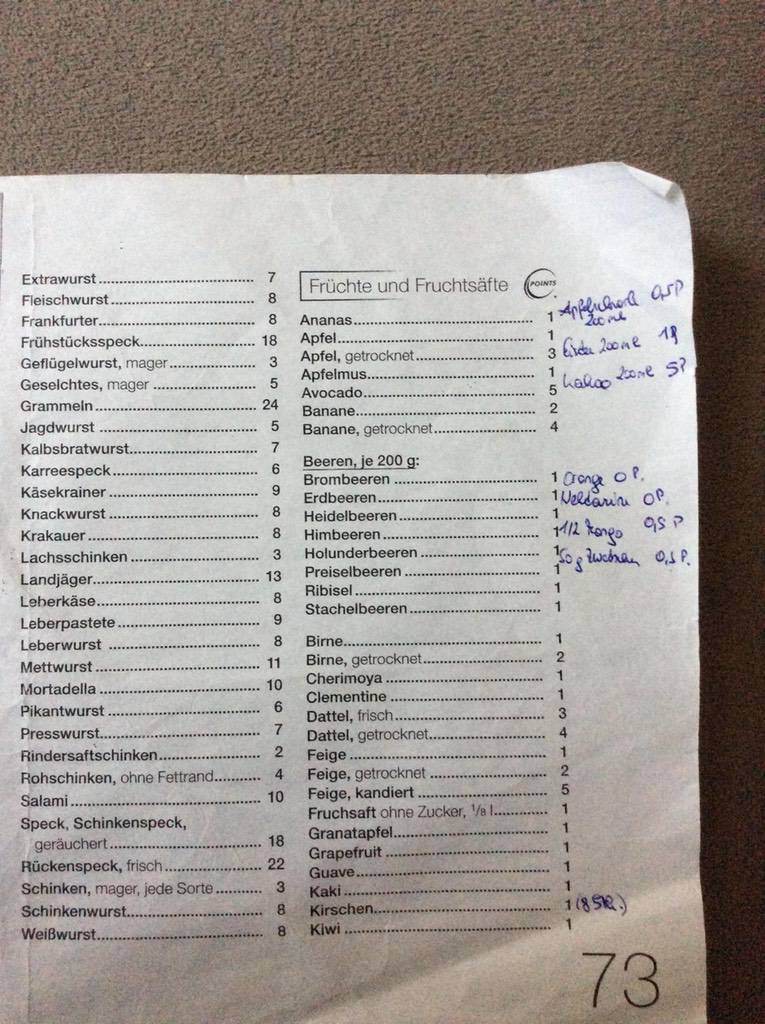 Extrawurst 7
Fleischwurst 8
Frankfurter 8
Frühstücksspeck 18
Geflügelwurst, mager 3
Geselchtes, mager 5
Grammeln 24
Jagdwurst 5
Kalbsbratwurst 7
Karreespeck 6
Käsekrainer 9
Knackwurst 8
Krakauer 8
Lachsschinken 3
Landjäger 13
Leberkäse 8
Leberpastete 9
Leberwurst 8
Mettwurst 11
Mortadella 10
Pikantwurst 6
Presswurst 7
Rindersaftschinken 2
Rohschinken, ohne Fettrand 4
Salami 10
Speck, Schinkenspeck,
geräuchert 18
Rückenspeck, frisch 22
Schinken, mager, jede Sorte 3
Schinkenwurst 8
Weißwurst 8
Früchte und Fruchtsäfte POINTS
Ananas 1
Apfel 1
Apfel, getrocknet 3
Apfelmus 1
Avocado 5
Banane 2
Banane, getrocknet 4
0,5P
200ml
200ml 1P
Kakao 200ml 5P
Beeren, je 200 g:
Brombeeren 1 Orange 0 P.
Erdbeeren 1 Nektarine 0P.
Heidelbeeren 1
Himbeeren 1 1/2 0,5 P
Holunderbeeren 1
Preiselbeeren 1 50g 0,5 P.
Ribisel 1
Stachelbeeren 1
Birne 1
Birne, getrocknet 2
Cherimoya 1
Clementine 1
Dattel, frisch 3
Dattel, getrocknet 4
Feige 1
Feige, getrocknet 2
Feige, kandiert 5
Fruchsaft ohne Zucker, 1/8 l 1
Granatapfel 1
Grapefruit 1
Guave 1
Kaki 1
Kirschen 1 (8 Stk.)
Kiwi 1
73